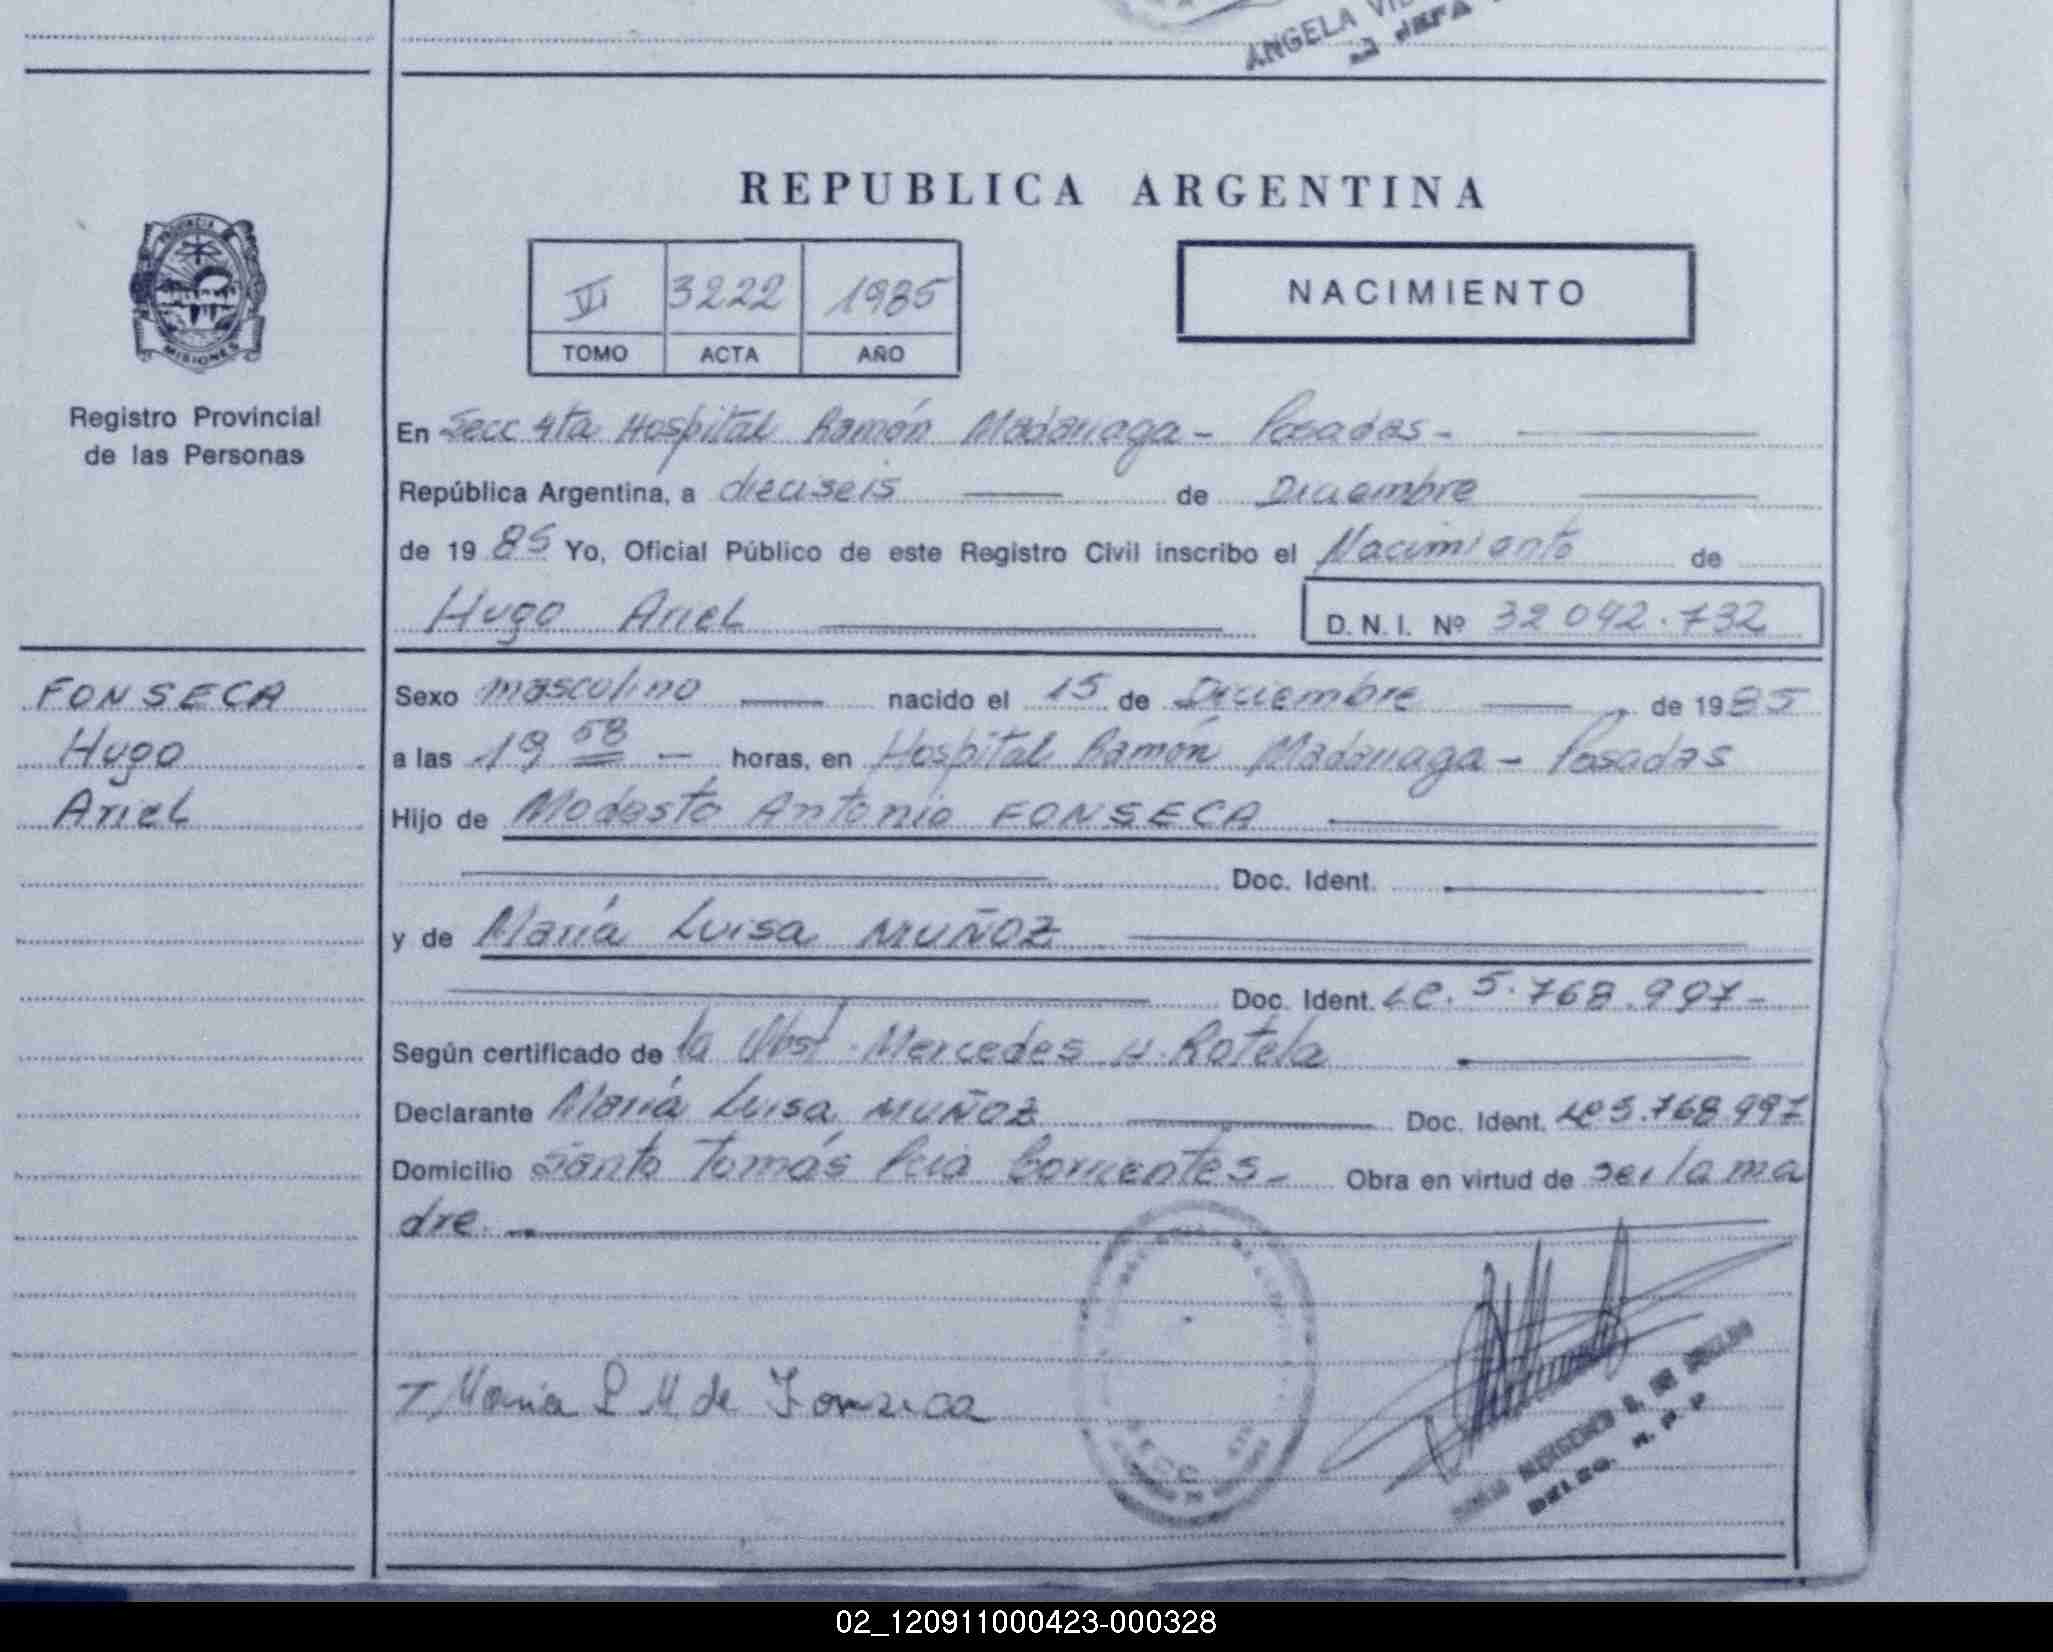 ANGELA
REPUBLICA ARGENTINA
PROVINCIA DE
MISIONES
VI 3222 1985
TOMO ACTA AÑO
NACIMIENTO
Registro Provincial
de las Personas
En Secc 4ta Hospital Ramón Madariaga - Posadas -
República Argentina, a dieciseis de Diciembre
de 19 85 Yo, Oficial Público de este Registro Civil inscribo el Nacimiento de
Hugo Ariel D.N.I. Nº 32 042.732
FONSECA
Hugo
Ariel
Sexo masculino nacido el 15 de Diciembre de 19 85
a las 19 58 - horas, en Hospital Ramón Madariaga - Posadas
Hijo de Modesto Antonio FONSECA
Doc. Ident.
y de María Luisa MUÑOZ
Doc. Ident. LC. 5.768.997-
Según certificado de la Obst. Mercedes H. Rotela
Declarante María Luisa MUÑOZ Doc. Ident. LC 5.768.997
Domicilio Santo Tomás Pcia Corrientes - Obra en virtud de ser la ma
dre.
María L M de Fonseca
DELEG. R. P. P
02_120911000423-000328